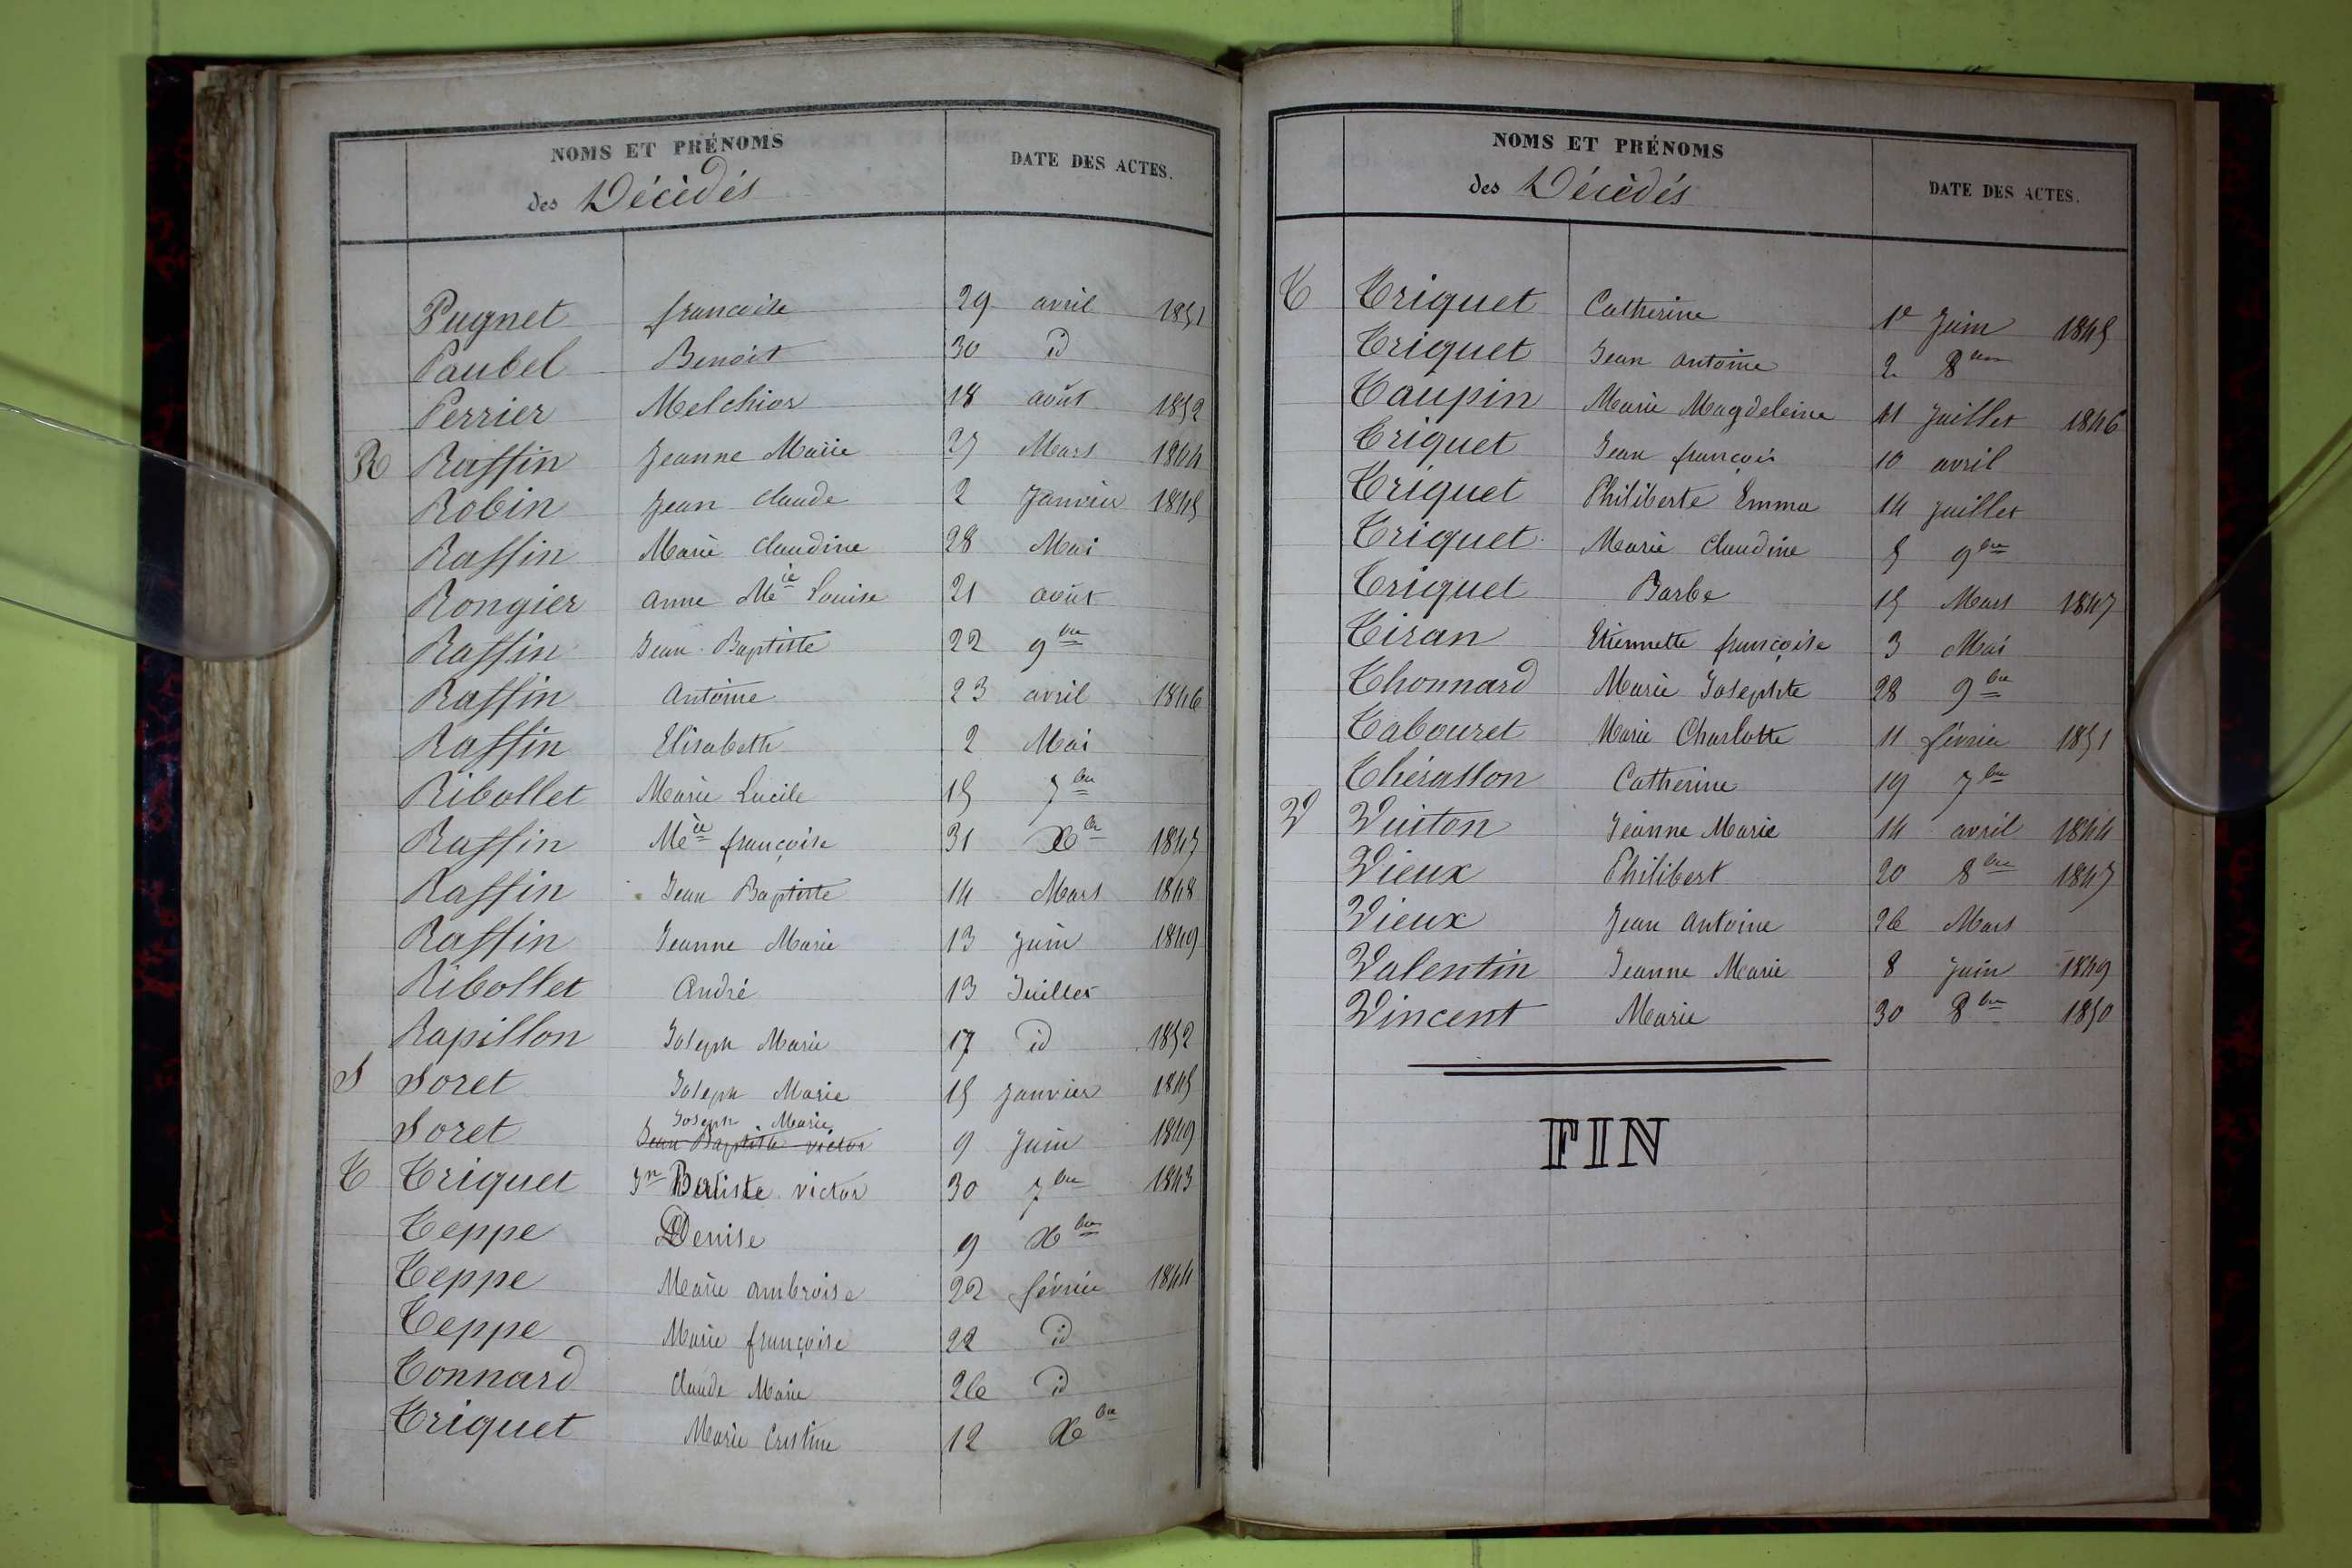 NOMS ET PRÉNOMS
des Décédés
DATE DES ACTES.
Pugnet françoise 29 avril 1851
Paubel Benoit 30 id
Perrier Melchior 18 août 1852
R Raffin Jeanne Marie 27 Mars 1844
Robin Jean Claude 2 Janvier 1845
Raffin Marie Claudine 28 Mai
Rongier Anne Mie Louise 21 août
Raffin Jean Baptiste 22 9bre
Raffin Antoine 23 avril 1846
Raffin Elisabeth 2 Mai
Ribollet Marie Lucile 15 7bre
Raffin Mie françoise 31 Xbre 1847
Raffin Jean Baptiste 14 Mars 1848
Raffin Jeanne Marie 13 Juin 1849
Ribollet André 13 Juillet
Rapillon Joseph Marie 17 id 1852
S Soret Joseph Marie 15 Janvier 1845
Joseph Marie
Soret Jean Baptiste victor 9 Juin 1849
T Triquet Jn Batiste victor 30 7bre 1843
Teppe Denise 9 Xbre
Teppe Marie Ambroise 22 février 1844
Teppe Marie françoise 22 id
Tonnard Claude Marie 26 id
Triquet Marie Cristine 12 Xbre
NOMS ET PRÉNOMS
des Décédés
DATE DES ACTES.
T Triquet Catherine 1e Juin 1845
Triquet Jean Antoine 2 8bre
Taupin Marie Magdeleine 11 Juillet 1846
Triquet Jean françois 10 avril
Triquet Philiberte Emma 14 Juillet
Triquet Marie Claudine 5 9bre
Triquet Barbe 15 Mars 1847
Tiran Etiennette françoise 3 Mai
Thonnard Marie Josephte 28 9bre
Tabouret Marie Charlotte 11 février 1851
Thérasson Catherine 19 7bre
V Vuiton Jeanne Marie 14 avril 1844
Vieux Philibert 20 8bre 1847
Vieux Jean Antoine 26 Mars
Valentin Jeanne Marie 8 Juin 1849
Vincent Marie 30 8bre 1850
FIN